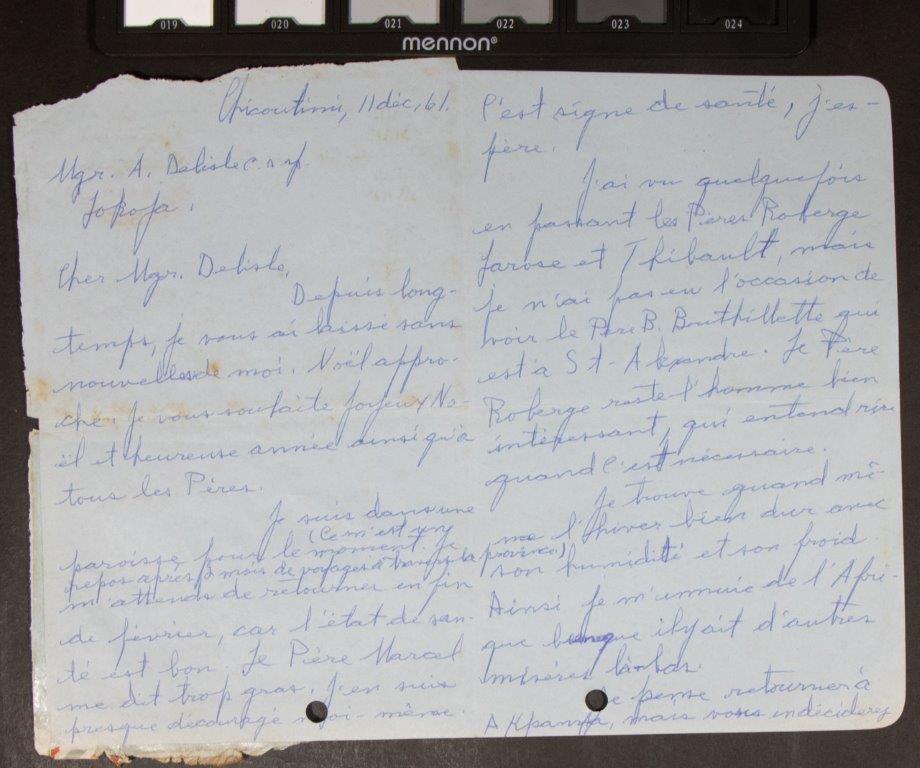 019 020 021 022 023 024
mennon®
Chicoutimi, 11 déc, 61.
Mgr. A. Delisle c.s.sp.
Lokoja.
Cher Mgr. Delisle,
Depuis long-
temps, je vous ai laissé sans
nouvelles de moi. Noël appro-
che, je vous souhaite Joyeux No-
ël et heureuse année ainsi qu'à
tous les Pères.
Je suis dans une
paroisse pour le moment. Je
(Ce m'est un
repos après 2 mois de voyages à travers la province)
m'attends de retourner en fin
de février, car l'état de san-
té est bon. Le Père Marcel
me dit trop gras. J'en suis
presque découragé moi-même.
C'est signe de santé, j'es-
père.
J'ai vu quelquefois
en passant les Pères Roberge
Larose et Thibault, mais
je n'ai pas eu l'occasion de
voir le Père B. Bouthillette qui
est à St-Alexandre. Le Père
Roberge reste l'homme bien
intéressant, qui entend rire
quand c'est nécessaire.
Je trouve quand mê-
me l'hiver bien dur avec
son humidité et son froid
Ainsi je m'ennuie de l'Afri-
que bien que il y ait d'autres
misères là-bas.
Je pense retourner à
Akpanya, mais vous en déciderez